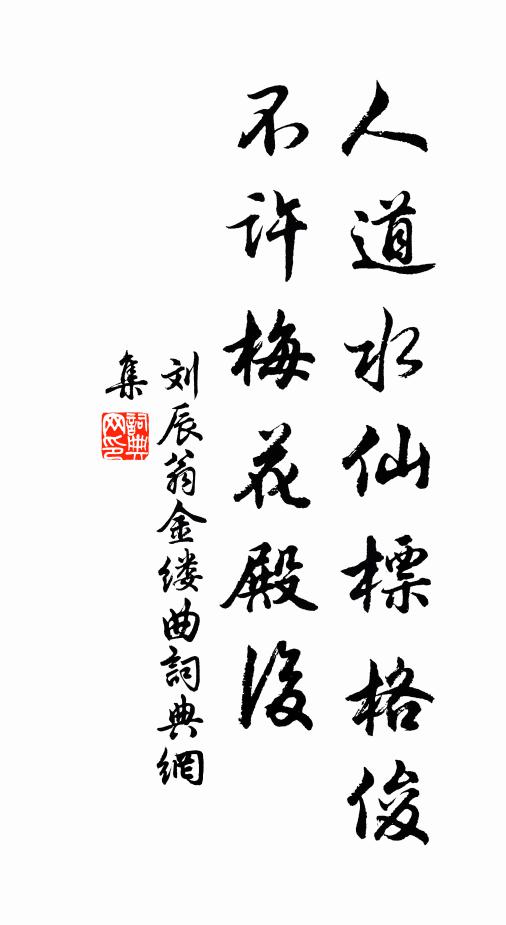 人道水仙標格俊
不许梅花殿後
刘辰翁金缕曲詞典網
集
詞典网印